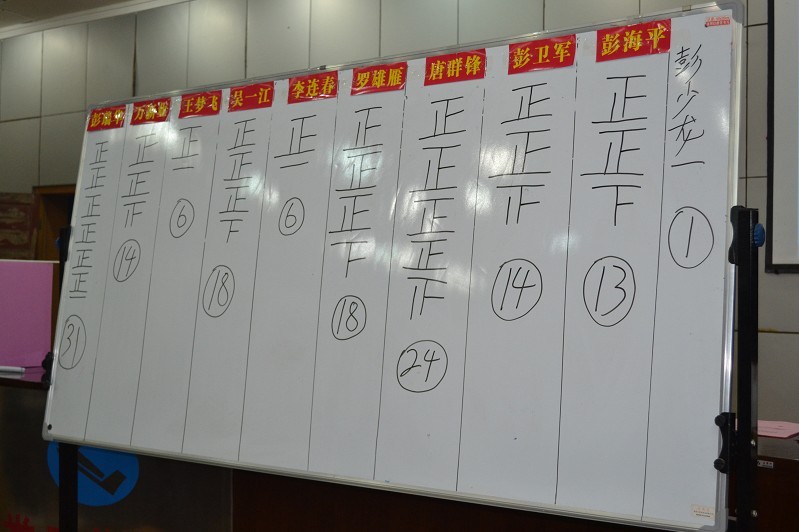 王梦飞
吴一江
李连春
罗雄雁
唐群锋
彭卫军
彭海平
彭少龙
正正正正正正一
31
正正
14
正一
6
正正正下
18
正一
6
正正正下
18
正正正正
24
正正
14
正正下
13
一
1